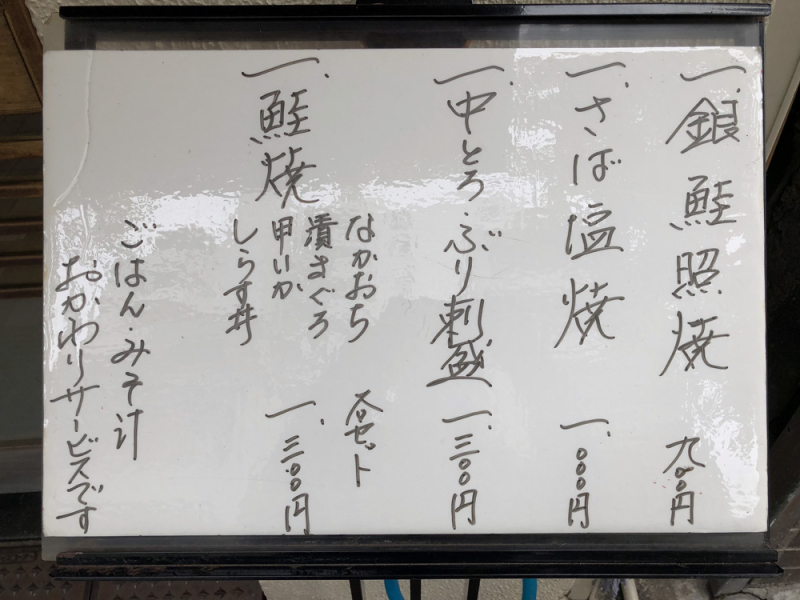 一、銀鮭照焼 九〇〇円
一、さば塩焼 一、〇〇〇円
一、中とろ・ぶり刺盛 一、三〇〇円
なかおち 各セット
漬まぐろ
一、鮭焼 甲いか 一、三〇〇円
しらす丼
ごはん・みそ汁
おかわりサービスです